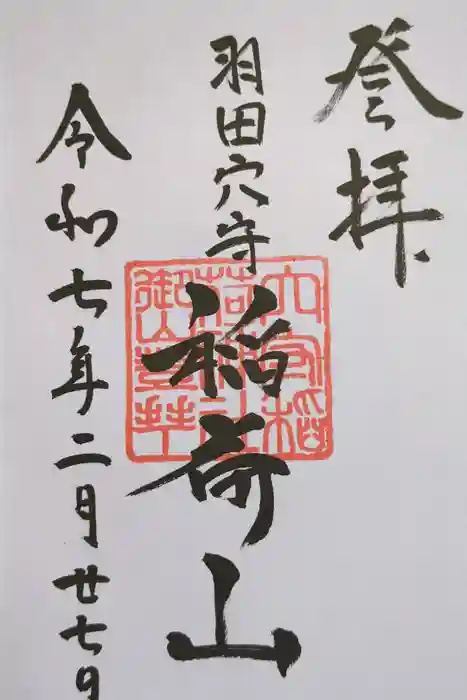 登拝
羽田穴守
稲荷山
穴守稲
荷神社
御山登拝
令和七年二月廿七日